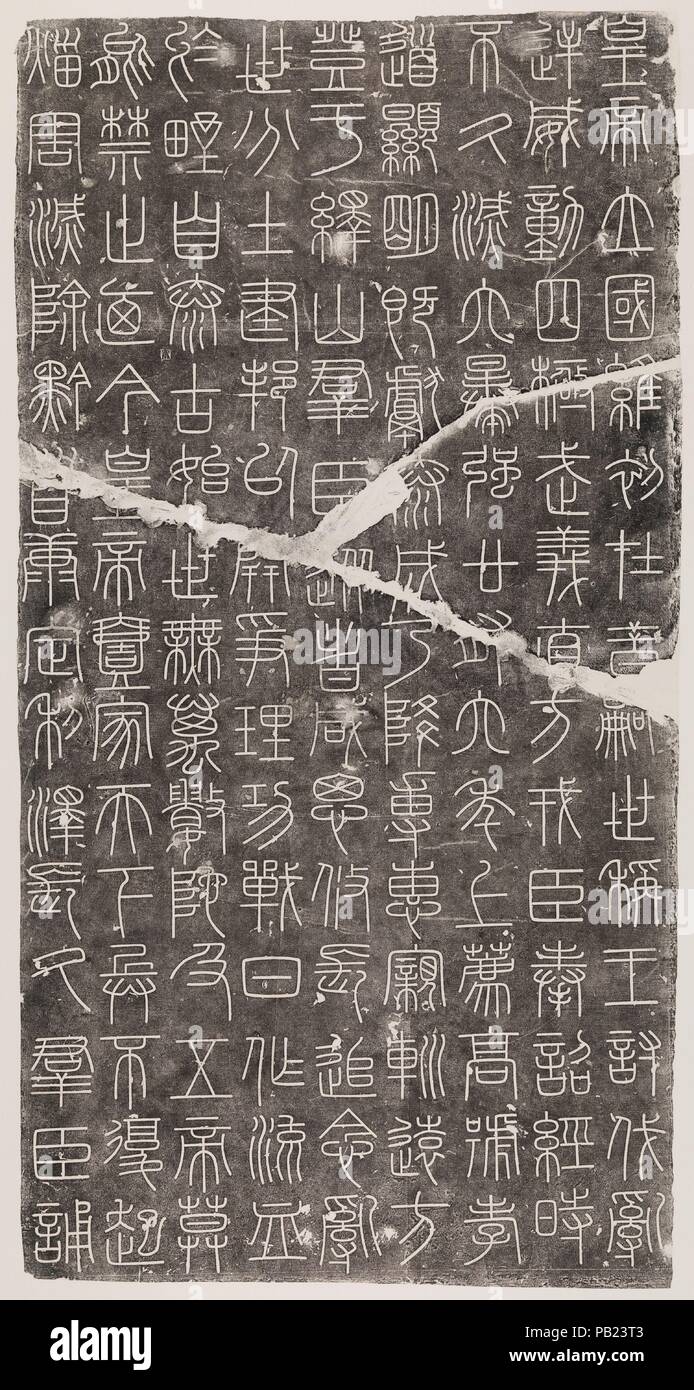 皇帝立國維初在昔嗣世稱王討伐亂
逆威動四極武義直方戎臣奉詔經時
不久滅六暴強廿有六年上薦高號孝
道顯明既獻泰成乃降專惠寴巡遠方
登于繹山群臣從者咸思攸長追念亂
世分土建邦以開爭理功戰日作流血
於野自泰古始世無萬數陀及五帝莫
能禁止廼今皇帝壹家天下兵不復起
烖害滅除黔首康定利澤長久群臣誦
alamy
Image ID: PB23T3
www.alamy.com